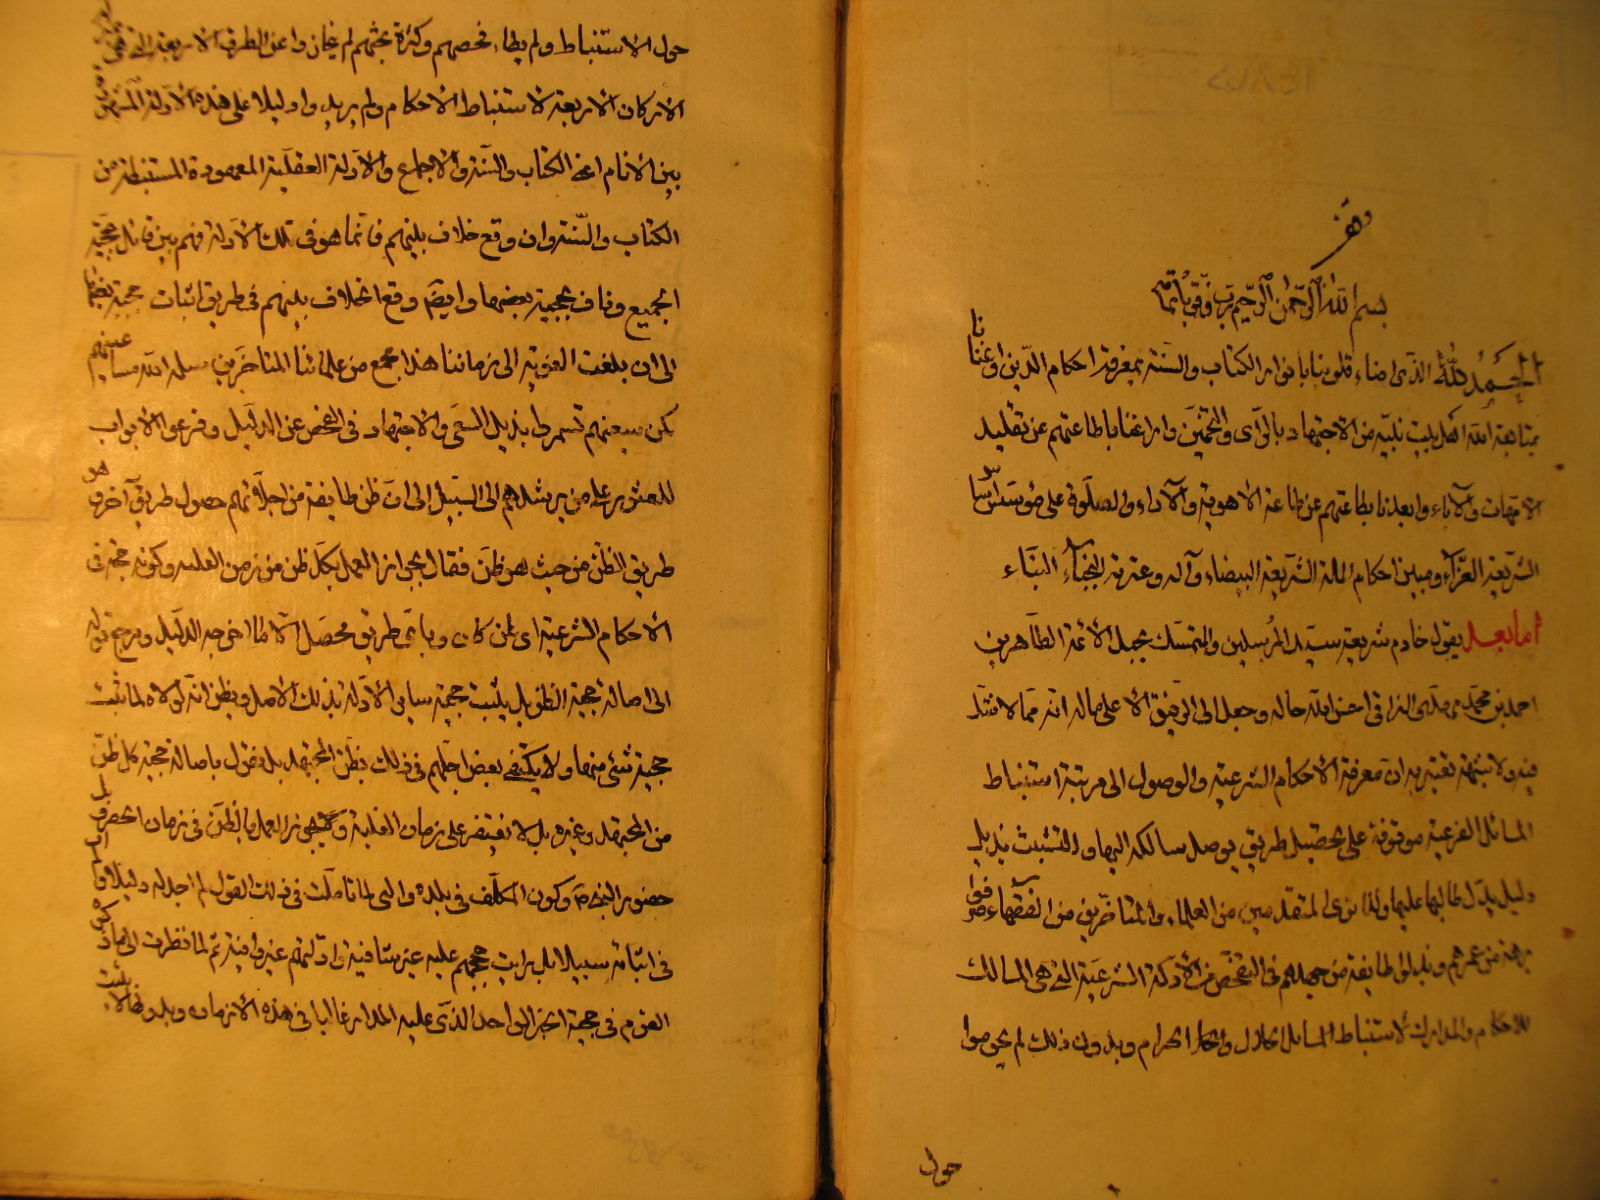 وقف
بسم الله الرحمن الرحيم رب وفقني باتمامه
الحمد لله الذى اضاء قلوبنا بانوار الكتاب والسنة بمعرفة احكام الدين واغنانا
بمتابعة اهل بيت نبيّه من الاجتهاد بالرّأى والتخمين وارغبنا باطاعتهم عن تقليد
الامّهات والآباء وابعدنا بطاعتهم عن طاعة الاهوية والآراء والصلوة على مؤسس اساس
الشريعة الغرّاء ومبين احكام الملة الشريعة البيضاء وآله وعترته النجباء
اما بعد يقول خادم شريعة سيد المرسلين والمتمسك بحبل الائمة الطاهرين
احمد بن محمد مهدى النراقى احسن الله حاله وجعل الى الرفيق الاعلى ماله انه مما لا
فيه ولا شبهة تعتريه ان معرفة الاحكام الشرعية والوصول الى مرتبة استنباط
المسائل الفرعية موقوفة على تحصيل طريق يوصل سالكه اليها والتشبث بذيل
دليل يدل طالبها عليها ولذا نرى المتقدمين من العلماء والمتاخرين من الفقهاء صرفوا
برهة من عمرهم وبذلوا طايفة من جهدهم فى التفحص من الادلة الشرعية التى هى المسالك
للاحكام والمدارك لاستنباط المسائل الحلال والحرام وبدون ذلك لم يحوموا
حول
حول الاستنباط ولم يطاء فحصهم وكثرة بحثهم لم يتجاوزوا عن الطرق الاربعة التى هى
الاركان الاربعة لاستنباط الاحكام ولم يريدوا دليلا على هذه الادلة المشهورة
بين الانام اعنى الكتاب والسنة والاجماع والادلة العقلية المعهودة المستنبطة من
الكتاب والسنة وان وقع خلاف بينهم فانما هو فى تلك الادلة فهم بين قائل بحجية
الجميع وناف بحجية بعضها وايضا وقع الخلاف بينهم فى طريق اثبات حجية بعضها
الى ان بلغت النوبة الى زماننا هذا جمع من علمائنا المتاخرين سله الله مساعيهم
لكن سعيهم تسمروا بذيل السعى والاجتهاد فى الفحص عن الدليل وقرعوا الابواب
للعثور على من يرشدهم الى السبيل الى ان ظن طايفة من اجلّائهم حصول طريق آخر هو
طريق الظن من حيث هو ظن فقال بجواز العمل بكل ظن من زمن الغيبة وكونه حجة فى
الاحكام الشرعية اى ظن كان وباى طريق محصل الا ما اخرجه الدليل ومرجع قوله
الى اصالة حجية الظن بل يثبت حجية سايرالادلة بذلك الاصل ويظن انه لولاه لما ثبت
حجية شئ منها ولا يكتفى بعض اجلّهم فى ذلك بظن المجتهد بل يقول باصالة حجية كل ظن
من المجتهد وغيره بل لا يقتصر على زمان الغيبة ويجوز العمل بالظن فى زمان الحضور بل
حضور النبى ص وكون المكلف فى بلده وانى لما تاملت فى ذلك القول لم اجد له دليلا ولم ار
فى اثباته سبيلا بل رايت حججهم عليه غير شافية وادلتهم غير وافية ثم لما نظرت الى ما ذكره
القوم فى حجية الخبر الواحد الذى عليه المدار غالبا فى هذه الازمان وبدونه